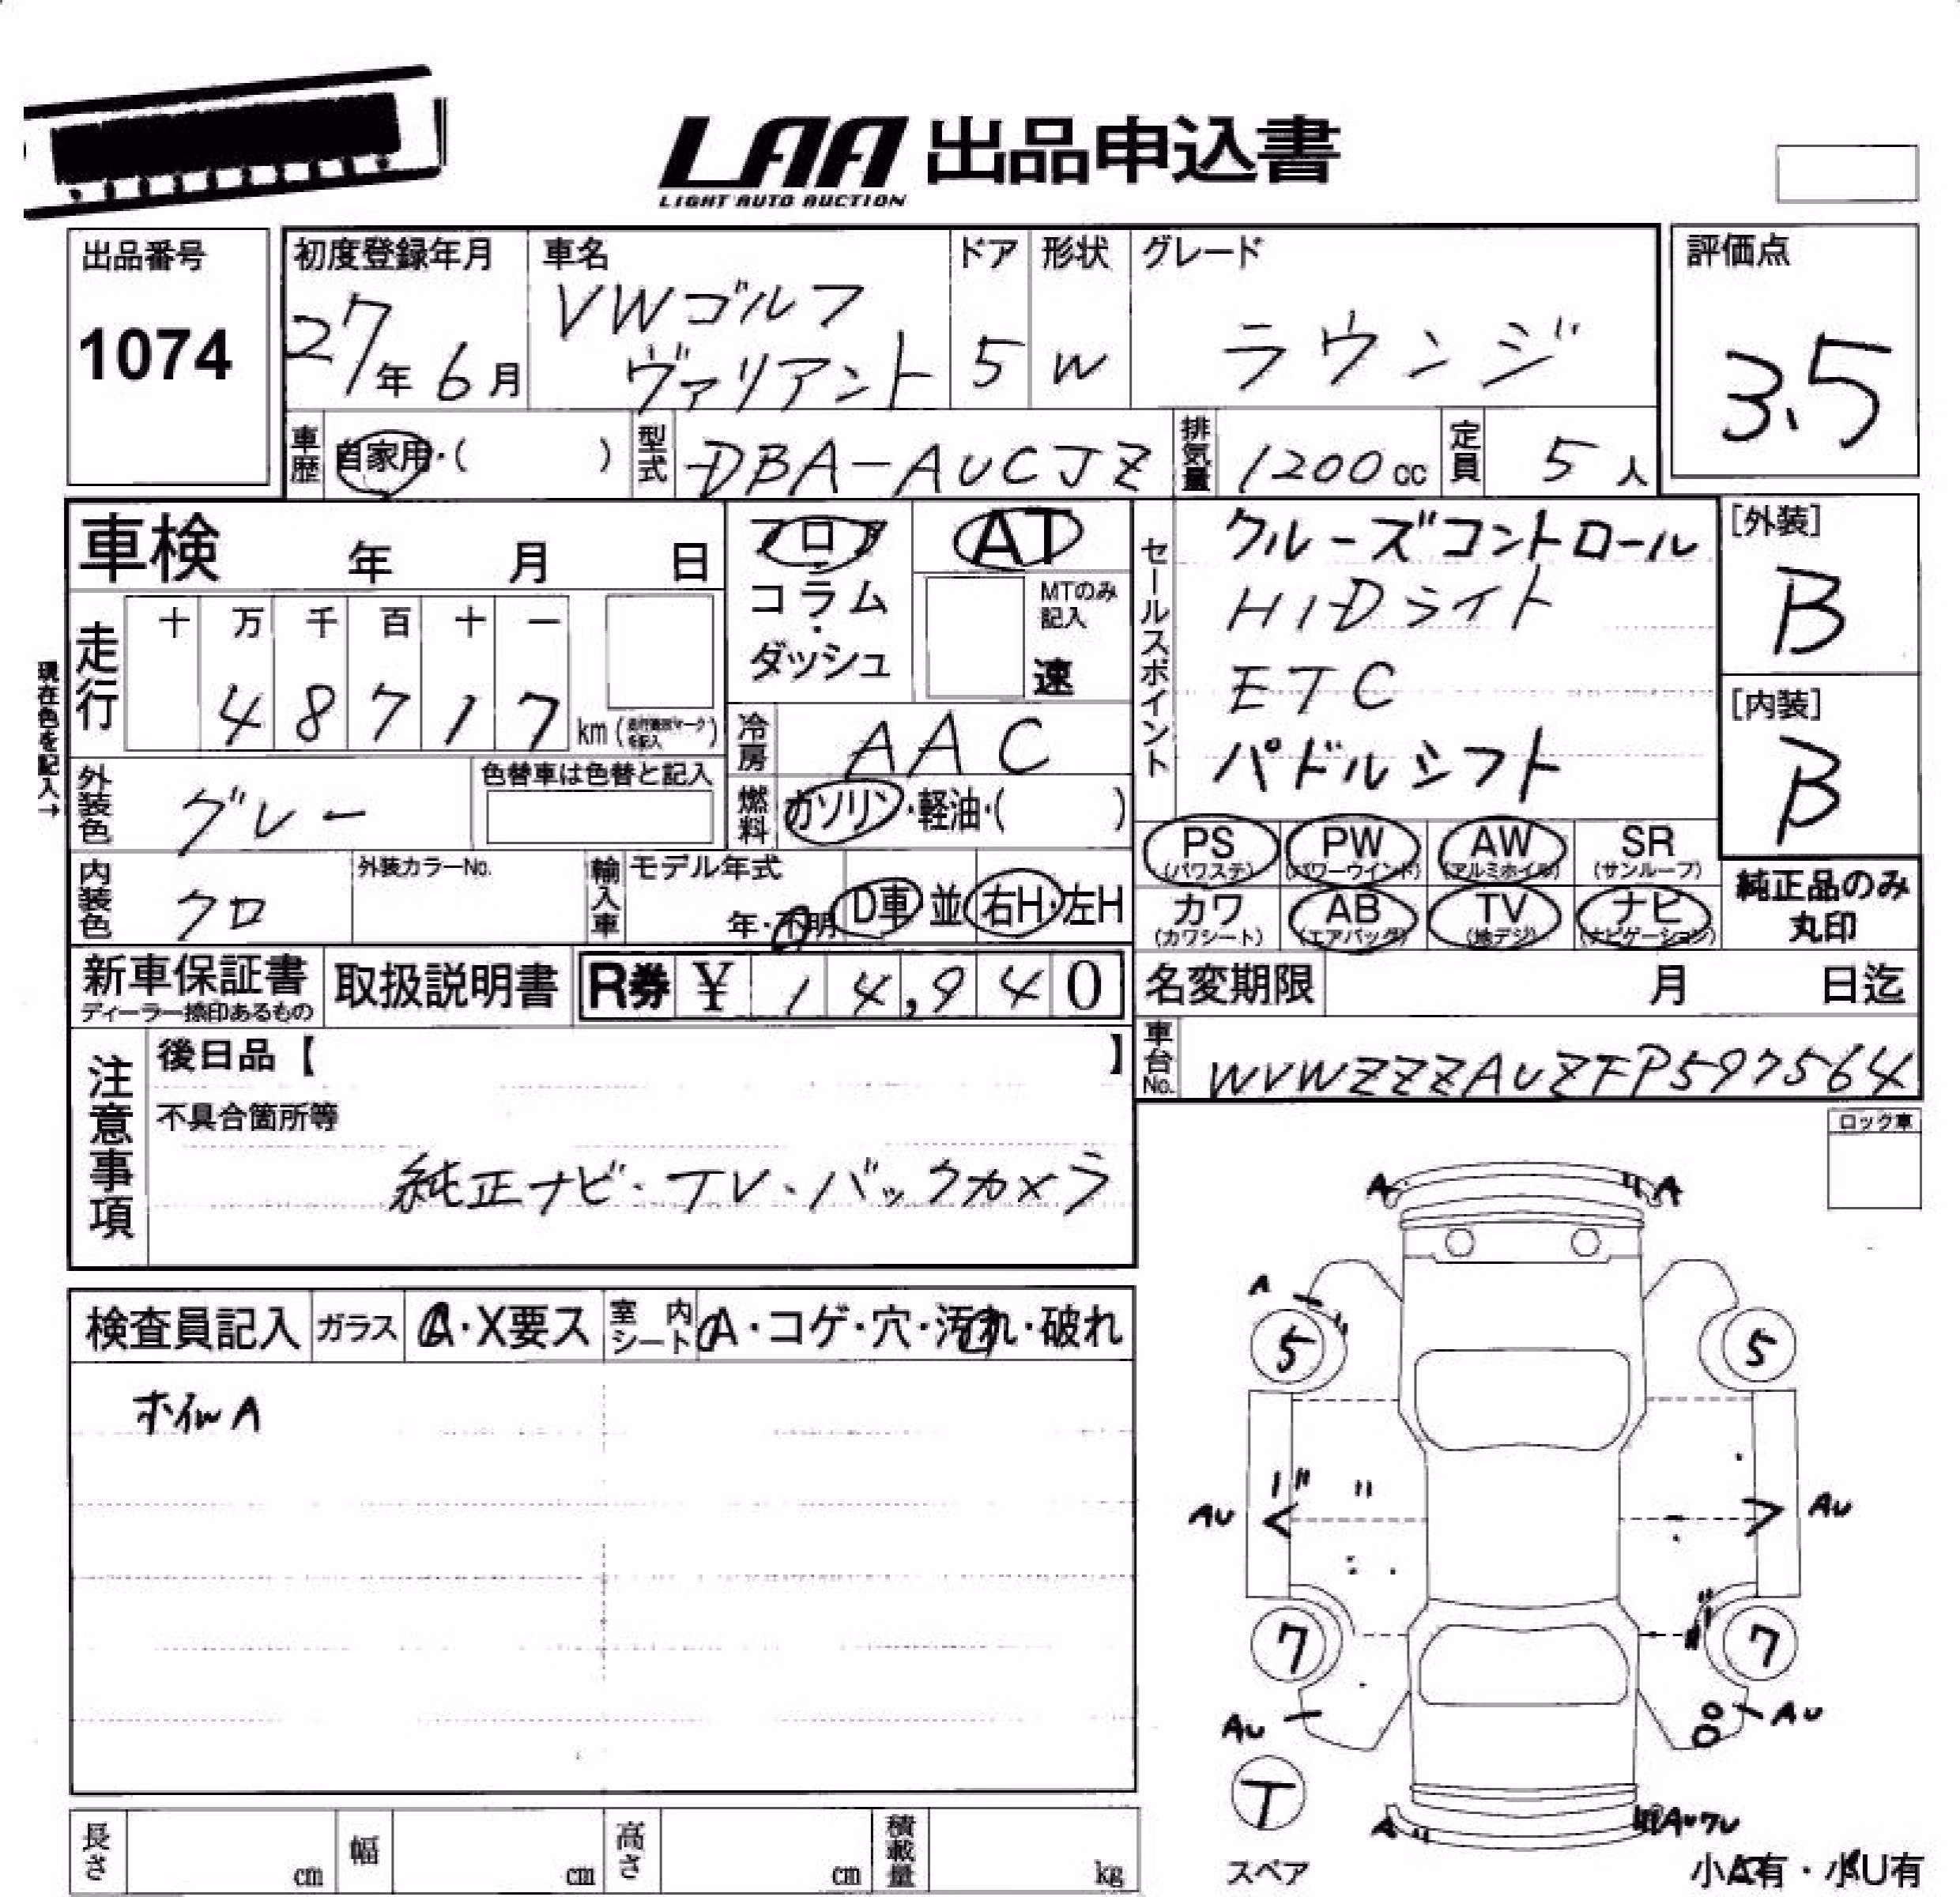 LAA 出品申込書
LIGHT AUTO AUCTION
出品番号
1074
初度登録年月
27年6月
車名
VWゴルフ
ヴァリアント
ドア
5
形状
W
グレード
ラウンジ
評価点
3.5
車歴 自家用・( )
型式 DBA-AUCJZ
排気量 1200cc
定員 5人
車検 年 月 日
フロア
コラム
・
ダッシュ
AT
MTのみ
記入
速
セールスポイント
クルーズコントロール
HIDライト
ETC
パドルシフト
[外装]
B
[内装]
B
現在色を記入→
走行
十 万 千 百 十 一
4 8 7 1 7 km
冷房 AAC
燃料 ガソリン・軽油・( )
外装色 グレー
色替車は色替と記入
内装色 クロ
外装カラーNo.
輸入車
モデル年式
年・不明
D車 並 右H・左H
PS (パワステ)
PW (パワーウインド)
AW (アルミホイル)
SR (サンルーフ)
カワ (カワシート)
AB (エアバッグ)
TV (地デジ)
ナビ (ナビゲーション)
純正品のみ
丸印
新車保証書
ディーラー捺印あるもの
取扱説明書
R券 ¥ 14,940
名変期限 月 日迄
車台No. WVWZZZAUZFP597564
注意事項
後日品【 】
不具合箇所等
純正ナビ・TV・バックカメラ
ロック車
検査員記入
ガラス A・X要ス
室内シート A・コゲ・穴・汚れ・破れ
ホイルA
A A
A
5 5
AU AU
7 7
AU AU
T
スペア
A
小A有・小U有
長さ cm
幅 cm
高さ cm
積載量 kg